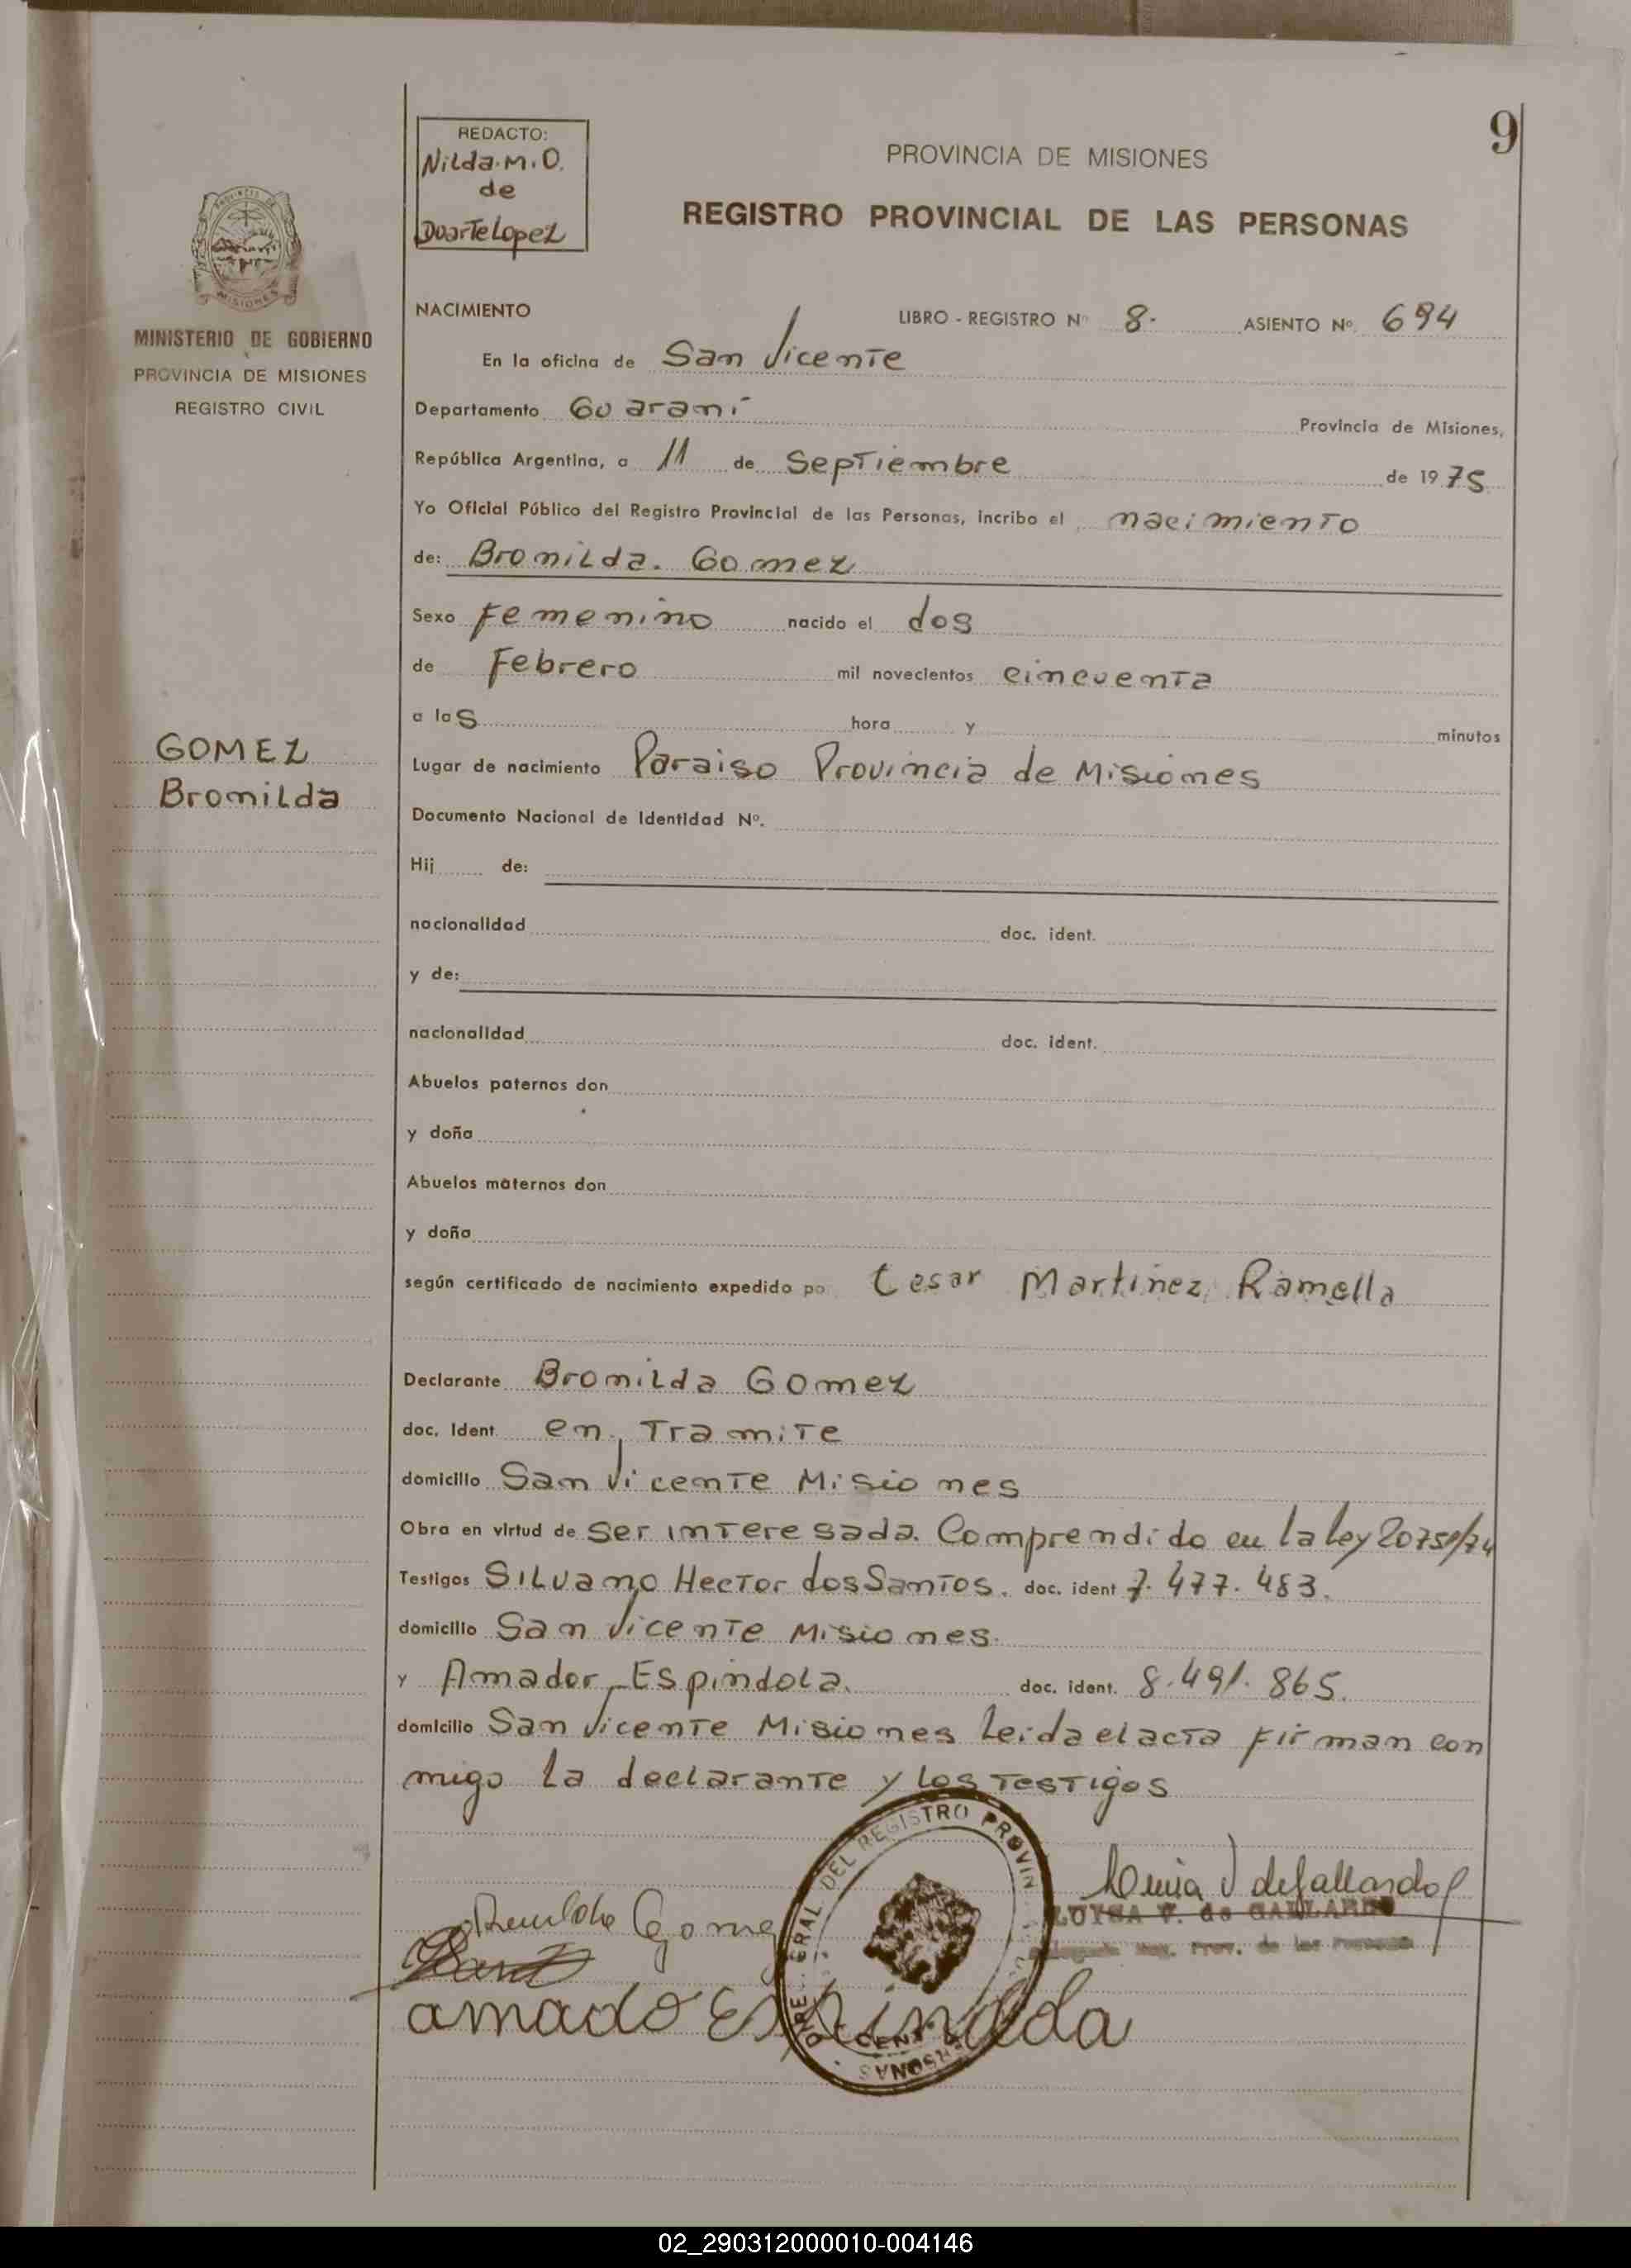 9
REDACTO:
Nilda.M.O.
de
Duarte Lopez
PROVINCIA DE MISIONES
REGISTRO PROVINCIAL DE LAS PERSONAS
MINISTERIO DE GOBIERNO
PROVINCIA DE MISIONES
REGISTRO CIVIL
GOMEZ
Bromilda
NACIMIENTO
LIBRO - REGISTRO Nº 8. ASIENTO Nº 694
En la oficina de San Vicente
Departamento Guarani Provincia de Misiones,
República Argentina, a 11 de Septiembre de 1975
Yo Oficial Público del Registro Provincial de las Personas, incribo el nacimiento
de: Bromilda. Gomez
Sexo Femenino nacido el dos
de Febrero mil novecientos cincuenta
a las hora y minutos
Lugar de nacimiento Paraiso Provincia de Misiones
Documento Nacional de Identidad Nº.
Hij de:
nacionalidad doc. ident.
y de:
nacionalidad doc. ident.
Abuelos paternos don
y doña
Abuelos maternos don
y doña
según certificado de nacimiento expedido po Cesar Martinez Ramella
Declarante Bromilda Gomez
doc. Ident en Tramite
domicilio San Vicente Misiones
Obra en virtud de ser interesada. Comprendido en la ley 20751/74
Testigos Silvano Hector dos Santos. doc. ident 7.477.483.
domicilio San Vicente Misiones.
y Amador Espindola. doc. ident. 8.491.865.
domicilio San Vicente Misiones Leida el acta firman con
migo la declarante y los testigos
Gome
Luisa V de Gallardo
LUISA V. de GALLARDO
Reg. Prov. de las Personas
amado Espindola
DIREC. GRAL DEL REGISTRO PROVIN
PERSONAS
02_290312000010-004146